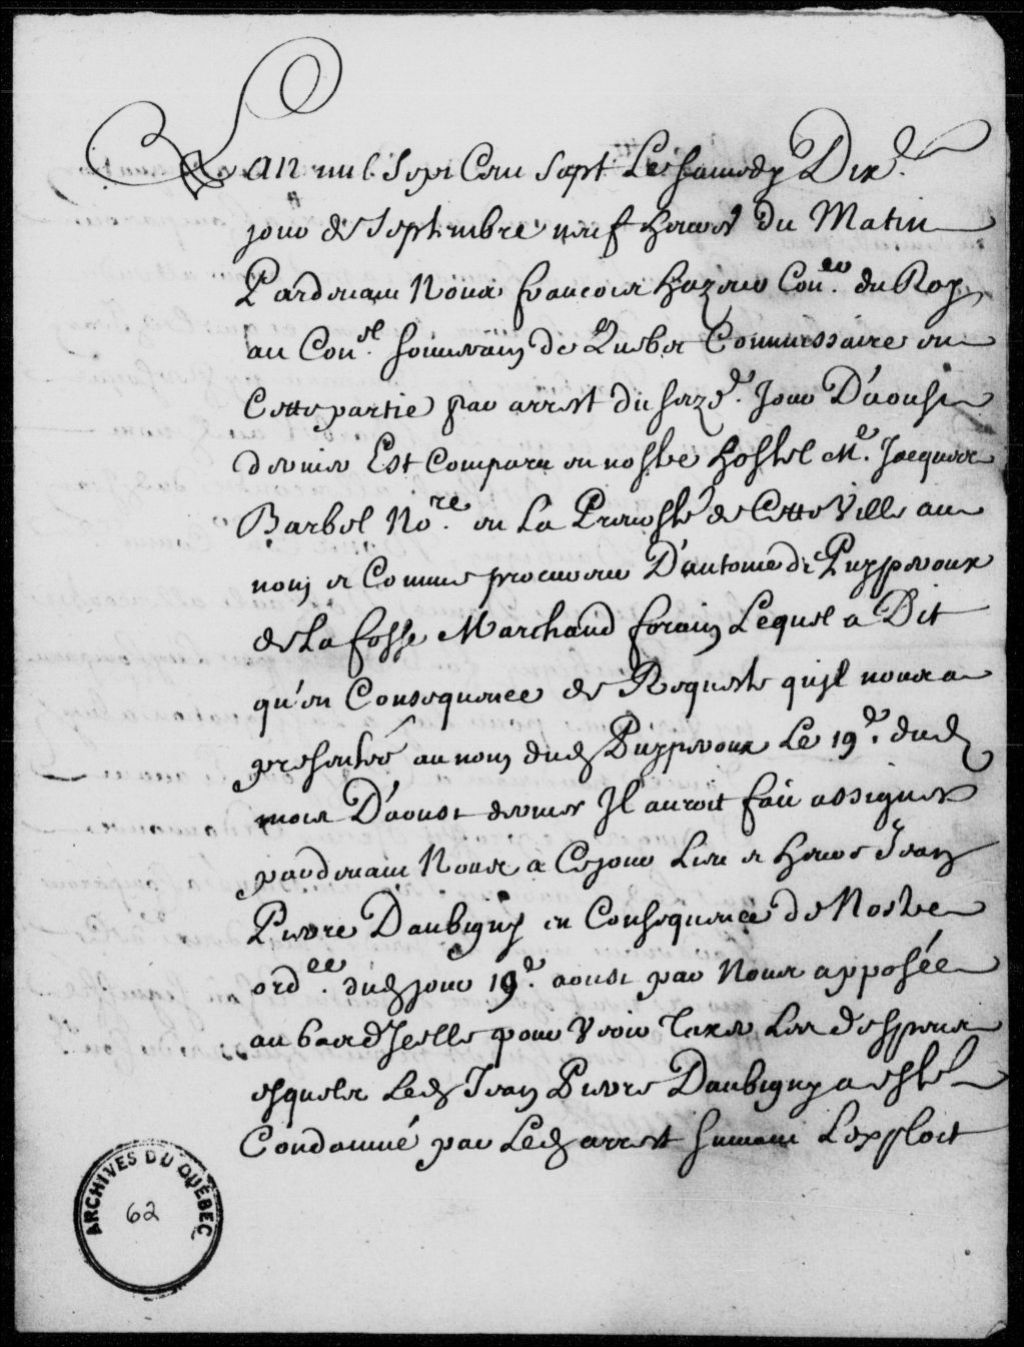 L'an mil Sept Cens Sept Le Samedy Dix.e
jour de Septembre neuf heures du Matin
Pardevant Nous françois hazeur Con.er du Roy
au Con.el Souverain de Quebec Commissaire en
Cette partie par arrest du Seize.e Jour D'aoust
dernier Est Comparu en nostre hostel M.e Jacques
Barbel No.re en La Prevosté de Cette Ville au
nom et Comme procureur D'antoine de Puyperoux
de La fosse Marchand forain Lequel a Dit
qu'en Consequence de Requeste qu'jl nous a
presentée au nom dud Puyperoux Le 19.e dud
mois D'aoust dernier Jl auroit fait assigner
pardevant Nous a Ce jour Lieu et heure Jean
Pierre Daubigny en Consequence de Nostre
ord.ce dud jour 19.e aoust par Nous apposée
au bas d'Jcelle pour Veoir taxer Les despens
esquels Led Jean Pierre Daubigny a esté
Condamné par Led arrest Suivant L'exploit
ARCHIVES DU QUÉBEC
62